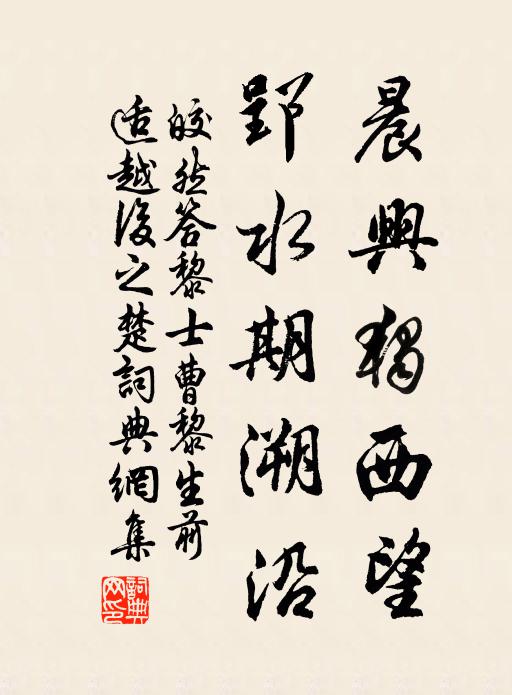 晨興獨西望
郢水期溯沿
皎然答黎士曹黎生前
适越後之楚詞典網集
詞典網印